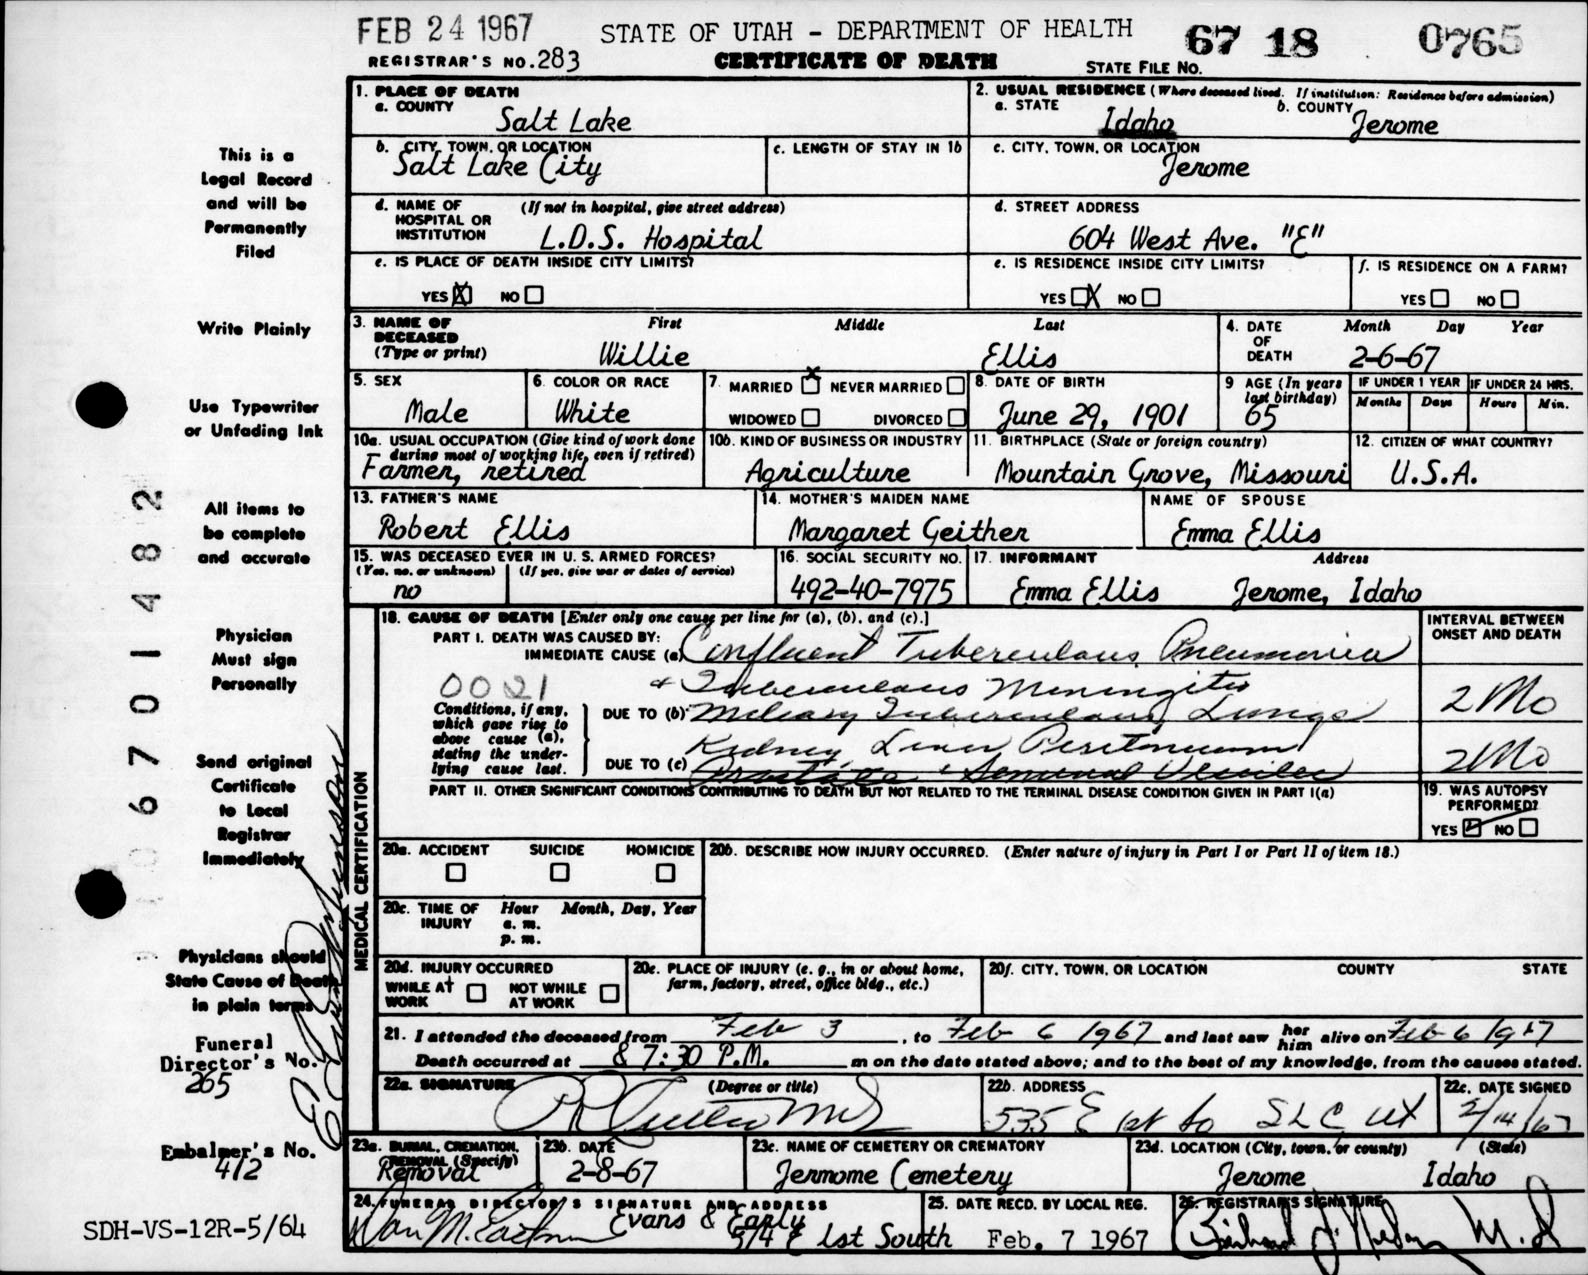 FEB 24 1967
STATE OF UTAH - DEPARTMENT OF HEALTH
67 18 0765
REGISTRAR'S NO. 283
CERTIFICATE OF DEATH
STATE FILE NO.
This is a
Legal Record
and will be
Permanently
Filed
Write Plainly
Use Typewriter
or Unfading Ink
All items to
be complete
and accurate
Physician
Must sign
Personally
Send original
Certificate
to Local
Registrar
Immediately
Physicians should
State Cause of Death
in plain terms
Funeral
Director's No.
265
Embalmer's No.
412
SDH-VS-12R-5/64
0 6701482
1. PLACE OF DEATH
a. COUNTY
Salt Lake
2. USUAL RESIDENCE (Where deceased lived. If institution: Residence before admission)
a. STATE
Idaho
b. COUNTY
Jerome
b. CITY, TOWN, OR LOCATION
Salt Lake City
c. LENGTH OF STAY IN 1b
c. CITY, TOWN, OR LOCATION
Jerome
d. NAME OF HOSPITAL OR INSTITUTION
(If not in hospital, give street address)
L.D.S. Hospital
d. STREET ADDRESS
604 West Ave. "E"
e. IS PLACE OF DEATH INSIDE CITY LIMITS?
YES X NO
e. IS RESIDENCE INSIDE CITY LIMITS?
YES X NO
f. IS RESIDENCE ON A FARM?
YES NO
3. NAME OF DECEASED
(Type or print)
First Middle Last
Willie Ellis
4. DATE OF DEATH
Month Day Year
2-6-67
5. SEX
Male
6. COLOR OR RACE
White
7. MARRIED X NEVER MARRIED
WIDOWED DIVORCED
8. DATE OF BIRTH
June 29, 1901
9 AGE (In years last birthday)
65
IF UNDER 1 YEAR IF UNDER 24 HRS.
Months Days Hours Min.
10a. USUAL OCCUPATION (Give kind of work done during most of working life, even if retired)
Farmer, retired
10b. KIND OF BUSINESS OR INDUSTRY
Agriculture
11. BIRTHPLACE (State or foreign country)
Mountain Grove, Missouri
12. CITIZEN OF WHAT COUNTRY?
U.S.A.
13. FATHER'S NAME
Robert Ellis
14. MOTHER'S MAIDEN NAME
Margaret Geither
NAME OF SPOUSE
Emma Ellis
15. WAS DECEASED EVER IN U. S. ARMED FORCES?
(Yes, no, or unknown) (If yes, give war or dates of service)
no
16. SOCIAL SECURITY NO.
492-40-7975
17. INFORMANT Address
Emma Ellis Jerome, Idaho
MEDICAL CERTIFICATION
18. CAUSE OF DEATH [Enter only one cause per line for (a), (b), and (c).]
INTERVAL BETWEEN ONSET AND DEATH
PART I. DEATH WAS CAUSED BY:
IMMEDIATE CAUSE (a) Confluent Tuberculous Pneumonia
0021
& Tuberculous Meningitis
Conditions, if any, which gave rise to above cause (a), stating the underlying cause last.
DUE TO (b) Miliary Tuberculous, Lungs
2 Mo
Kidney, Liver, Peritoneum
DUE TO (c) Prostate & Seminal Vesicles
2 Mo
PART II. OTHER SIGNIFICANT CONDITIONS CONTRIBUTING TO DEATH BUT NOT RELATED TO THE TERMINAL DISEASE CONDITION GIVEN IN PART I(a)
19. WAS AUTOPSY PERFORMED?
YES NO
20a. ACCIDENT SUICIDE HOMICIDE
20b. DESCRIBE HOW INJURY OCCURRED. (Enter nature of injury in Part I or Part II of item 18.)
20c. TIME OF INJURY
Hour Month, Day, Year
a. m.
p. m.
20d. INJURY OCCURRED
WHILE AT WORK NOT WHILE AT WORK
20e. PLACE OF INJURY (e. g., in or about home, farm, factory, street, office bldg., etc.)
20f. CITY, TOWN, OR LOCATION COUNTY STATE
21. I attended the deceased from Feb 3, to Feb 6 1967 and last saw her him alive on Feb 6 1967
Death occurred at 7:30 P.M. m on the date stated above; and to the best of my knowledge, from the causes stated.
22a. SIGNATURE (Degree or title)
22b. ADDRESS
535 E 1st So SLC UT
22c. DATE SIGNED
2/14/67
23a. BURIAL, CREMATION, REMOVAL (Specify)
Removal
23b. DATE
2-8-67
23c. NAME OF CEMETERY OR CREMATORY
Jermome Cemetery
23d. LOCATION (City, town, or county) (State)
Jerome Idaho
24. FUNERAL DIRECTOR'S SIGNATURE AND ADDRESS
Evans & Early
574 E 1st South
25. DATE RECD. BY LOCAL REG.
Feb. 7 1967
26. REGISTRAR'S SIGNATURE